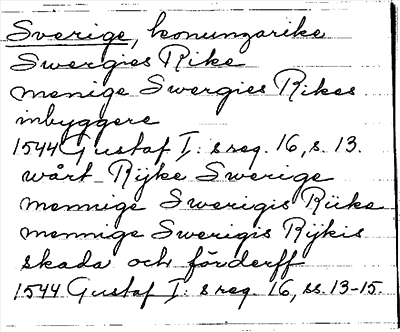 Sverige, konungarike
Swergies Rike
menige Swergies Rikes
inbyggere
1544 Gustaf I: s reg. 16, s. 13.
wårt Rijke Swerige
mennige Swerigis Riike
mennige Swerigis Rijkis
skada och förderff
1544 Gustaf I: s reg. 16, ss. 13-15.